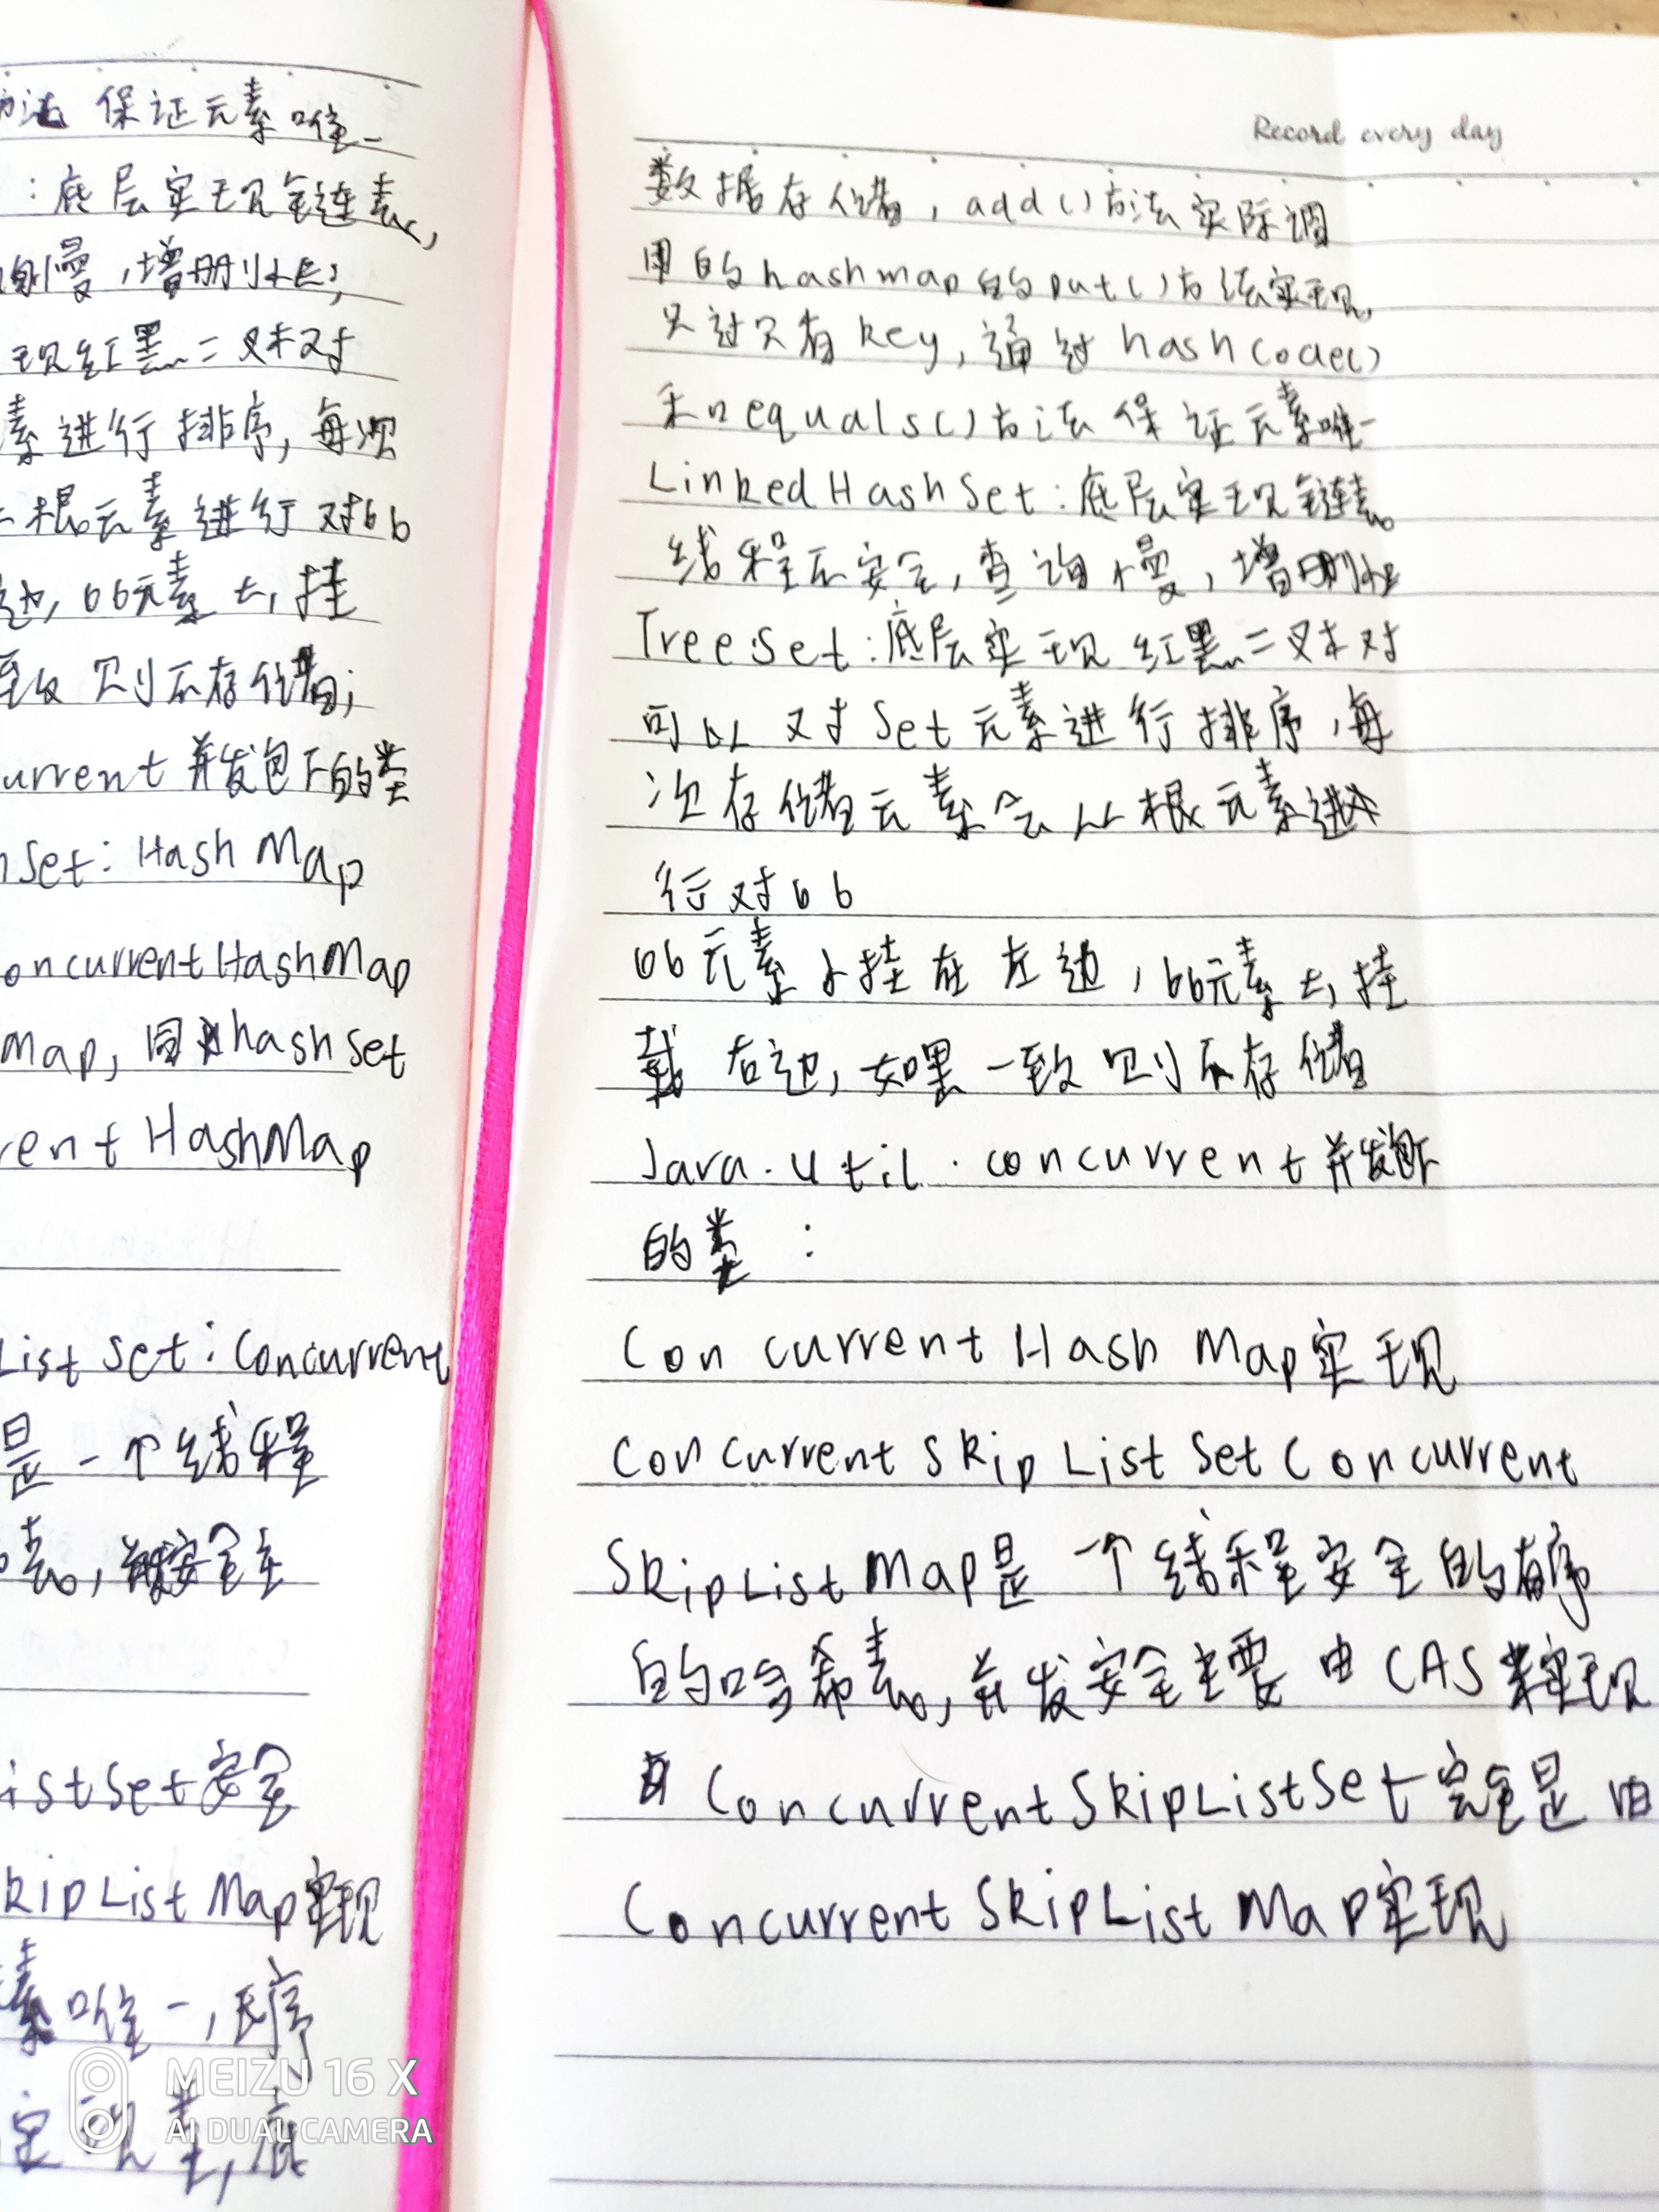 保证元素唯一
:底层实现链表,
慢,增删快;
现红黑二叉树对
素进行排序,每次
根元素进行对比
边,比元素大,挂
致则不存储;
urrent并发包下的类
Set:HashMap
oncurrentHashMap
Map,同hashset
rent HashMap
List Set:Concurrent
是一个线程
表,并发安全主
istSet安全
kipListMap实现
素唯一,
Record every day
数据存储,add()方法实际调
用的hashmap的put()方法实现,
只过只有key,通过hashcode()
和equals()方法保证元素唯一
LinkedHashSet:底层实现链表
线程不安全,查询慢,增删快
TreeSet:底层实现红黑二叉树对
可以对Set元素进行排序,每
次存储元素会从根元素进
行对比
比元素小挂在左边,比元素大,挂
载右边,如果一致则不存储
Java.util.concurrent并发包下
的类:
ConcurrentHashMap实现
ConcurrentSkipListSetConcurrent
SkipListMap是一个线程安全的有序
的哈希表,并发安全主要由CAS来实现
ConcurrentSkipListSet完全是由
ConcurrentSkipListMap实现
MEIZU 16 X
AI DUAL CAMERA